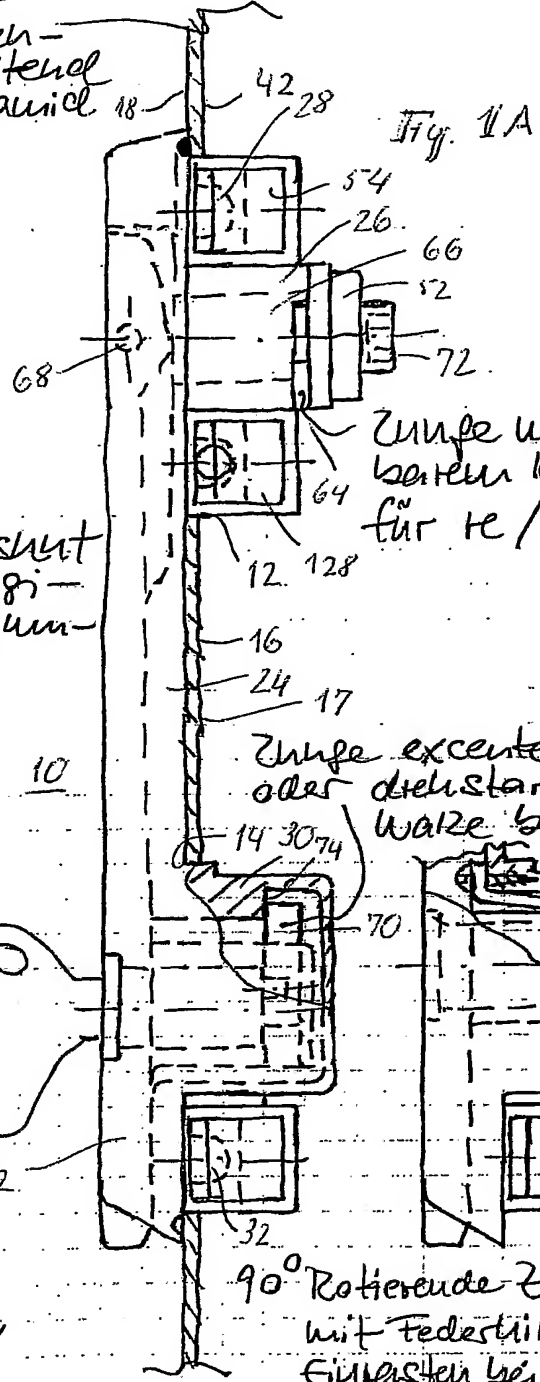 en-
tend
amid
18
42
28
Fig. 1A
54
26
66
52
68
72
Zunge
64
barem
für re /
12
128
gi-
um-
16
24
17
10
Zunge excente
oder drehstar
14
30
74
Walze b
70
32
90° Rotierende Z
mit Federhi
Einrasten bei